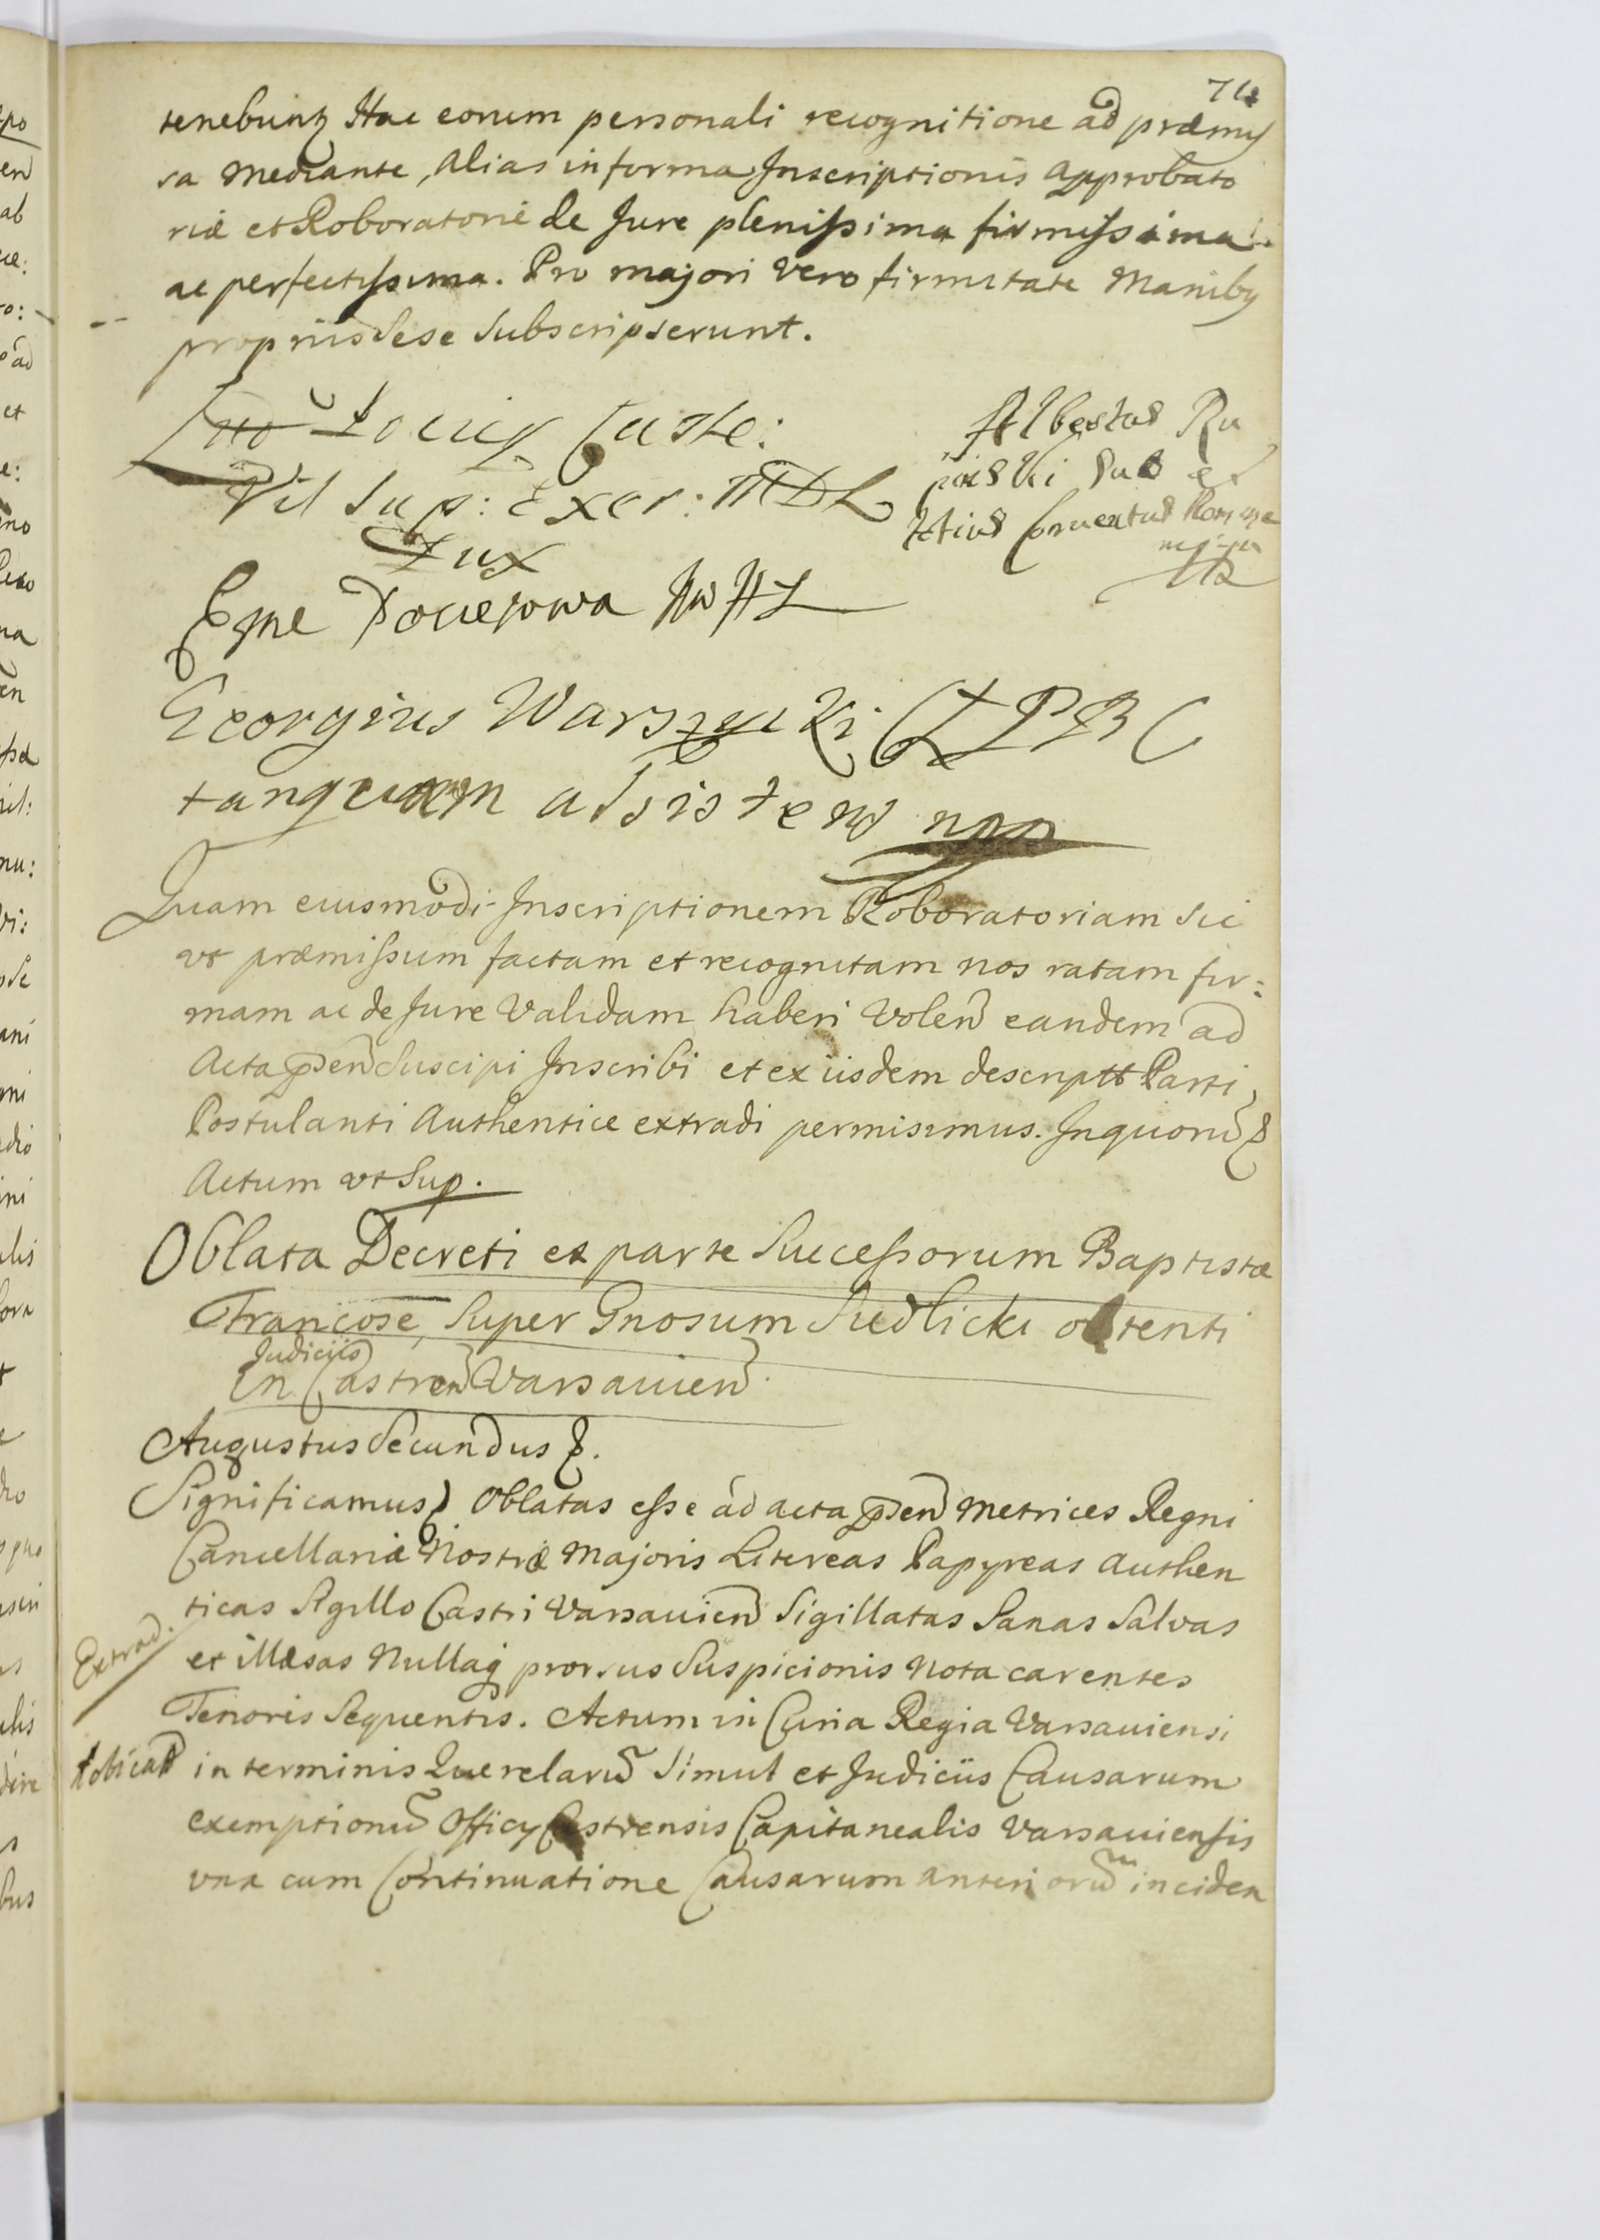 74
tenebuntꝫ Hac eorum personali recognitione ad præmiſ
sa mediante, Alias in forma Inscriptionis Approbato
riæ et Roboratoriæ de Jure pleniſsima firmiſsima
ac perfectiſsima. Pro majori Vero firmitate Manibꝫ
proprÿs Sese Subscripserunt.
Pociey Caste:
Vit Sup: Exer: MDL
Dux
Albertus Ru
pieski Sub
Conventus
Eme Pocieiowa HWHL
Georgius Warszycki CLPBC
tanquam aſsistens mpp
Quam eiusmodi Inscriptionem Roboratoriam Sic
vt præmiſsum factam et recognitam nos ratam fir:
mam ac de Jure Validam haberi Volen̄ eandem ad
Acta p̄ꝫen̄ Suscipi Inscribi et ex iisdem descriptt Parti
Postulanti Authentice extradi permisimus. In quorū ꝫ
Actum vt Sup.
Oblata Decreti ex parte Succeſsorum Baptistæ
Francose, Super Gnosum Siedlicki obtenti
Judiciis
in Castren̄ Varsavien̄.
Augustus Secundus ꝫ.
Significamus ꝫ Oblatas eſse ad acta p̄ꝫen̄ Metrices Regni
Cancellariæ Nostræ Majoris Litereas Papyreas Authen
ticas Sigillo Castri Varsavien̄ Sigillatas Sanas Salvas
Extrad.
et illæsas Nullaqꝫ prorsus Suspicionis Nota carentes
Tenoris Sequentis. Actum in Curia Regia Varsaviensi
in terminis Querelarū Simul et Judiciis Causarum
exemptionū Officÿ Castrensis Capitanealis Varsavienſis
vna cum Continuatione Causarum anteriorū inciden